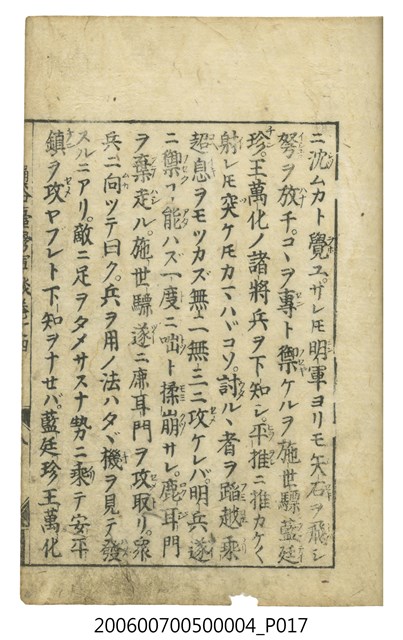 ニ沈ムカト覺ユ。ザレ𪜈明軍ヨリモ矢石ヲ飛シ
弩ヲ放チ。コヽヲ專ト禦ケルヲ施世驃藍廷
珍。王萬化ノ諸將兵ヲ下知シ平推ニ推カケ〱
射レ𪜈突ケ𪜈カマハバコソ。討ルヽ者ヲ踏越乘
超息ヲモツカズ無二無三ニ攻ケレバ。明兵遂
ニ禦コ能ハズ一度ニ咄ト揉崩サレ。鹿耳門
ヲ棄走ル。施世驃遂ニ鹿耳門ヲ攻取リ。衆
兵ニ向ツテ曰ク。兵ヲ用ノ法ハタヾ機ヲ見テ發
スルニアリ。敵ニ足ヲタメサスナ勢ニ乘テ安平
鎮ヲ攻ヤフレト下知ヲナセバ。藍廷珍王萬化
200600700500004_P017